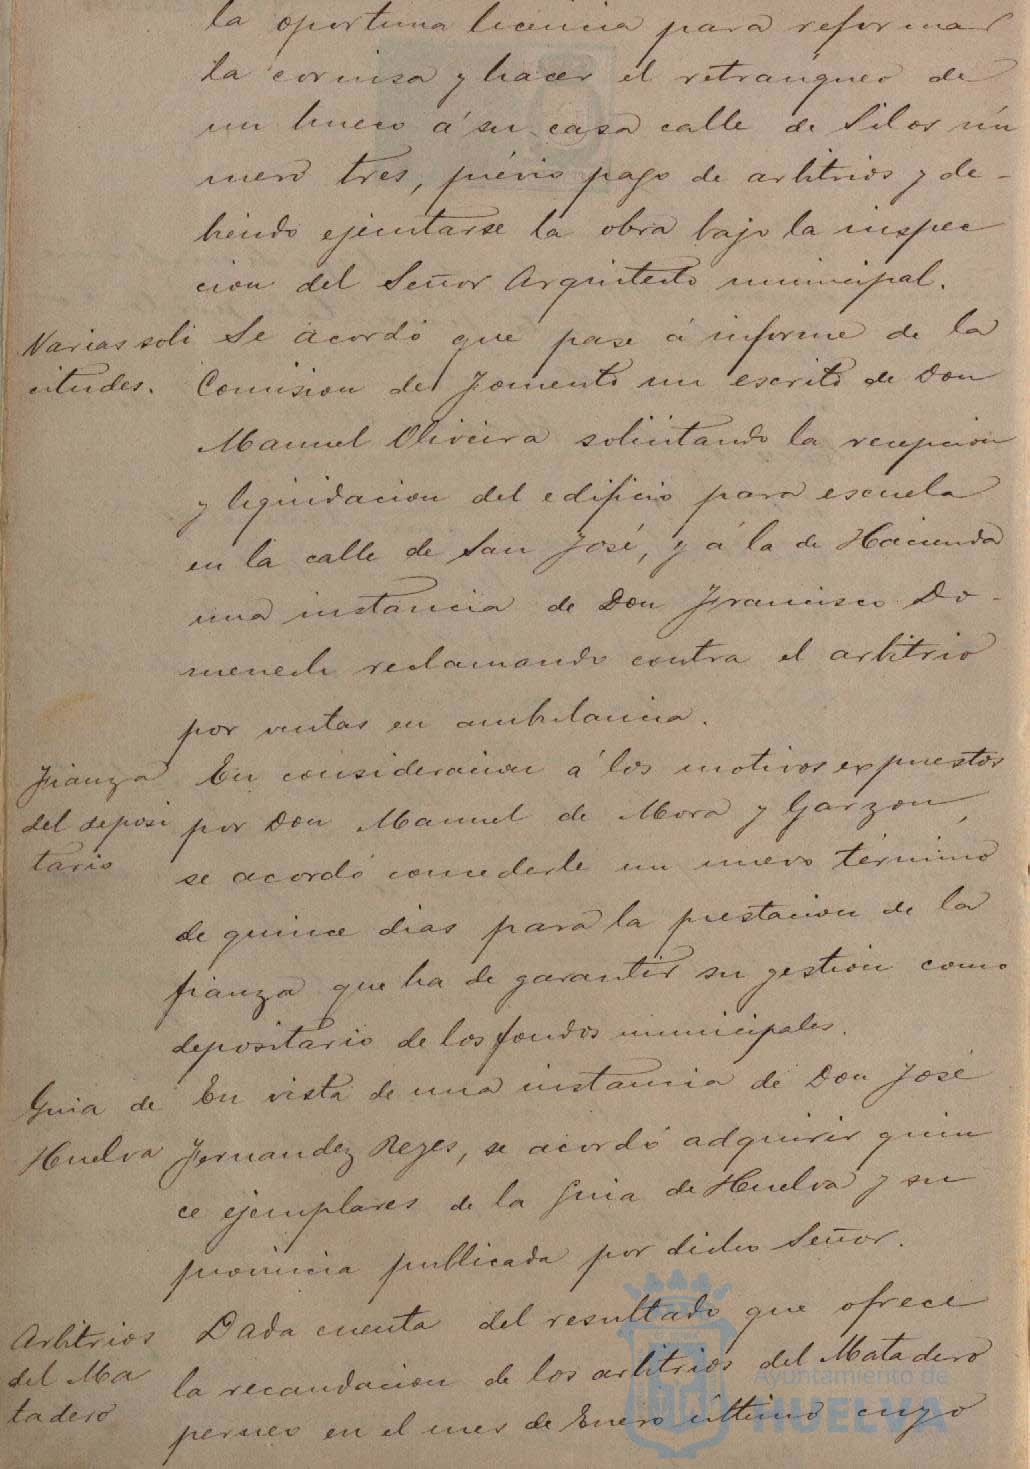 la oportuna licencia para reformar
la cornisa y hacer el retranqueo de
un hueco á su casa calle de Silos nú
mero tres, prévio pago de arbitrios y de-
biendo ejecutarse la obra bajo la inspec
cion del Señor Arquitecto municipal.
Varias soli
citudes.
Se acordó que pase á informe de la
Comision de Fomento un escrito de Don
Manuel Oliveira solicitando la recepcion
y liquidacion del edificio para escuela
en la calle de San José, y á la de Hacienda
una instancia de Don Francisco Do-
menech reclamando contra el arbitrio
por ventas en ambulancia.
Fianza
del deposi
tario
En consideracion á los motivos expuestos
por Don Manuel de Mora y Garzon,
se acordó concederle un nuevo término
de quince dias para la prestacion de la
fianza que ha de garantir su gestion como
depositario de los fondos municipales.
Guia de
Huelva
En vista de una instancia de Don José
Fernandez Reyes, se acordó adquirir quin
ce ejemplares de la Guia de Huelva y su
provincia publicada por dicho Señor.
Arbitrios
del Ma
tadero
Dada cuenta del resultado que ofrece
la recaudacion de los arbitrios del Matadero
perneo en el mes de Enero último cuyo
Ayuntamiento de
HUELVA